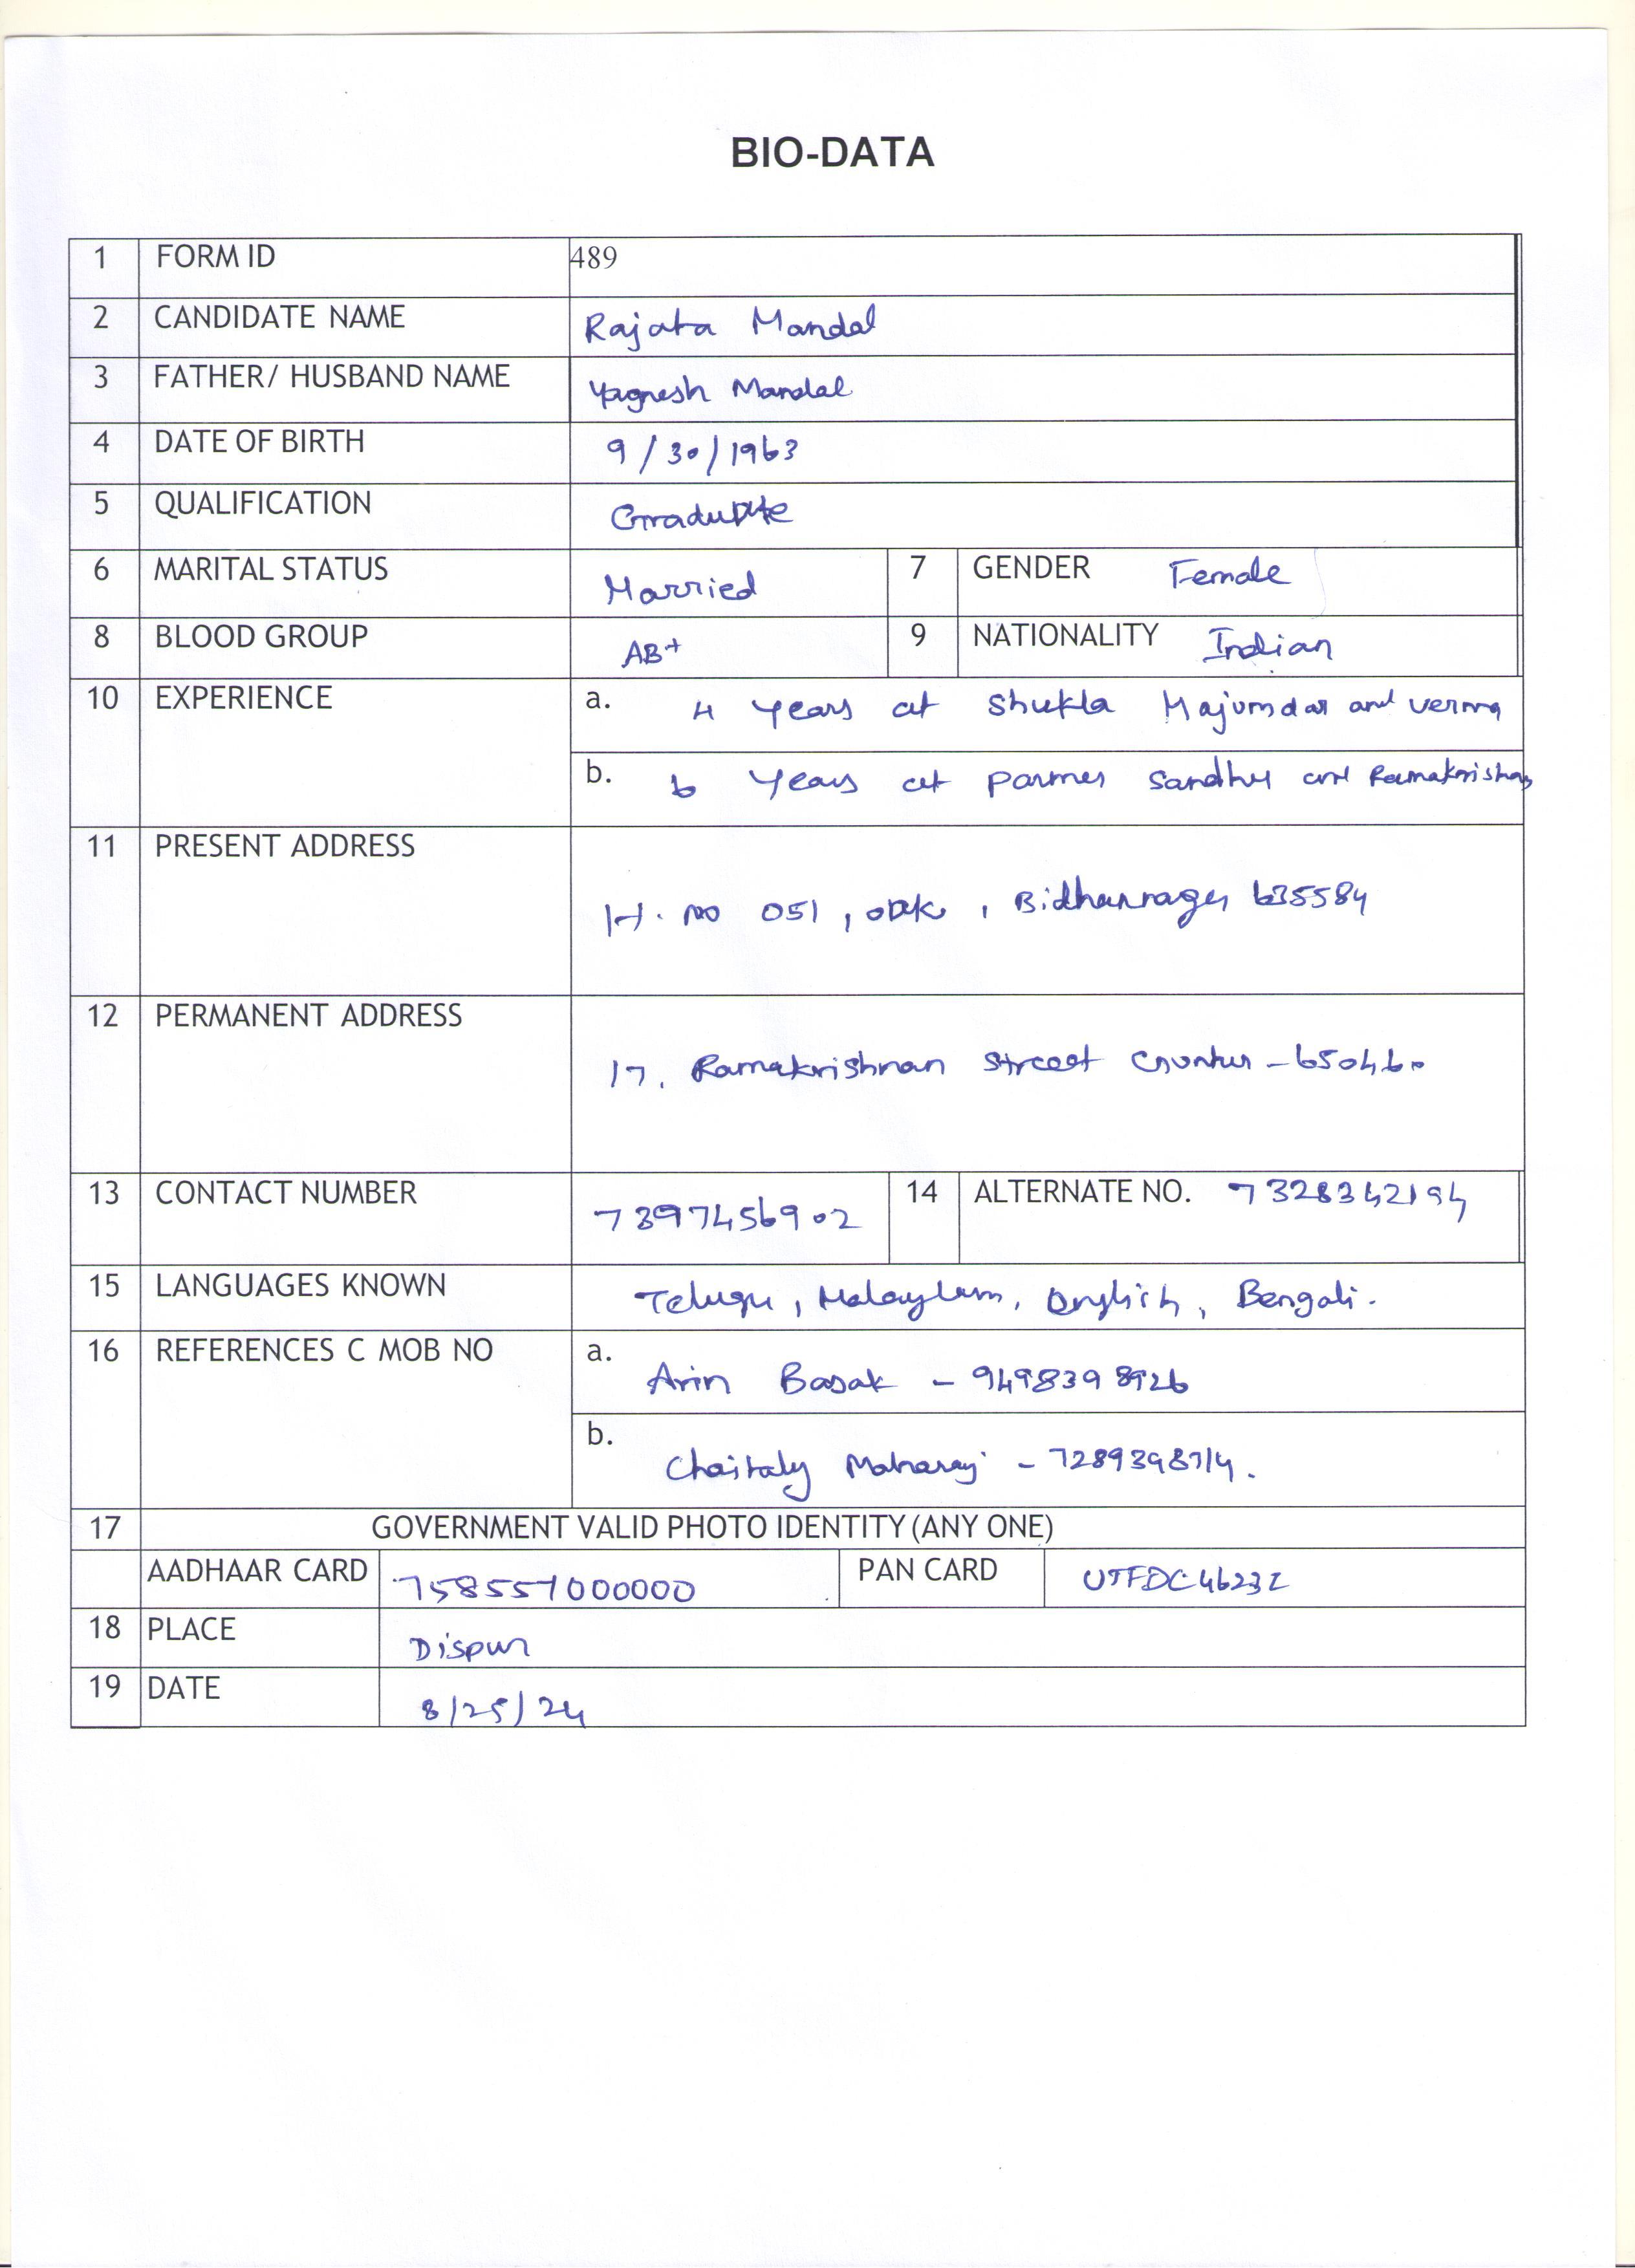 BIO-DATA
1 FORM ID 489
2 CANDIDATE NAME Rajata Mandal
3 FATHER/ HUSBAND NAME Yagnesh Mandal
4 DATE OF BIRTH 9/30/1963
5 QUALIFICATION Graduate
6 MARITAL STATUS Married 7 GENDER Female
8 BLOOD GROUP AB+ 9 NATIONALITY Indian
10 EXPERIENCE a. 4 years at Shukla Majumdar and Verma
b. 6 Years at Parmer Sandhu and
11 PRESENT ADDRESS
H. no 051, , Bidhannager 635584
12 PERMANENT ADDRESS
17, Ramakrishnan Street Guntur - 650460
13 CONTACT NUMBER 7397456902 14 ALTERNATE NO. 7328342194
15 LANGUAGES KNOWN Telugu, Malaylam, English, Bengali.
16 REFERENCES C MOB NO a. Arin Basak - 9498398926
b. Chaitaly Maharaj - 7289398714.
17 GOVERNMENT VALID PHOTO IDENTITY (ANY ONE)
AADHAAR CARD 758557000000 PAN CARD
18 PLACE Dispur
19 DATE 8/25/24